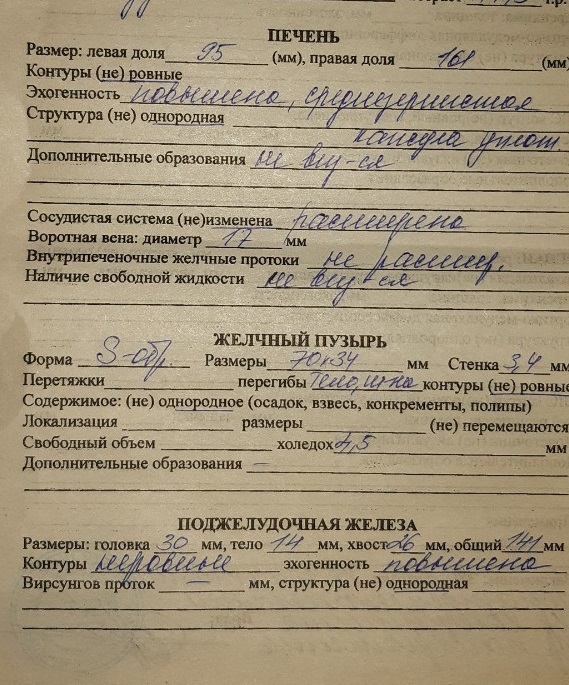 ПЕЧЕНЬ
Размер: левая доля 95 (мм), правая доля 161 (мм)
Контуры (не) ровные
Эхогенность повышена, среднезернистая
Структура (не) однородная
капсула уплот.
Дополнительные образования не виз-ся
Сосудистая система (не)изменена расширена
Воротная вена: диаметр 17 мм
Внутрипеченочные желчные протоки не расшир.
Наличие свободной жидкости не виз-ся
ЖЕЛЧНЫЙ ПУЗЫРЬ
Форма S-обр. Размеры 70х34 мм Стенка 3,4 мм
Перетяжки перегибы тело, шейка контуры (не) ровные
Содержимое: (не) однородное (осадок, взвесь, конкременты, полипы)
Локализация размеры (не) перемещаются
Свободный объем холедох 4,5 мм
Дополнительные образования —
ПОДЖЕЛУДОЧНАЯ ЖЕЛЕЗА
Размеры: головка 30 мм, тело 14 мм, хвост 26 мм, общий 141 мм
Контуры неровные эхогенность повышена
Вирсунгов проток — мм, структура (не) однородная